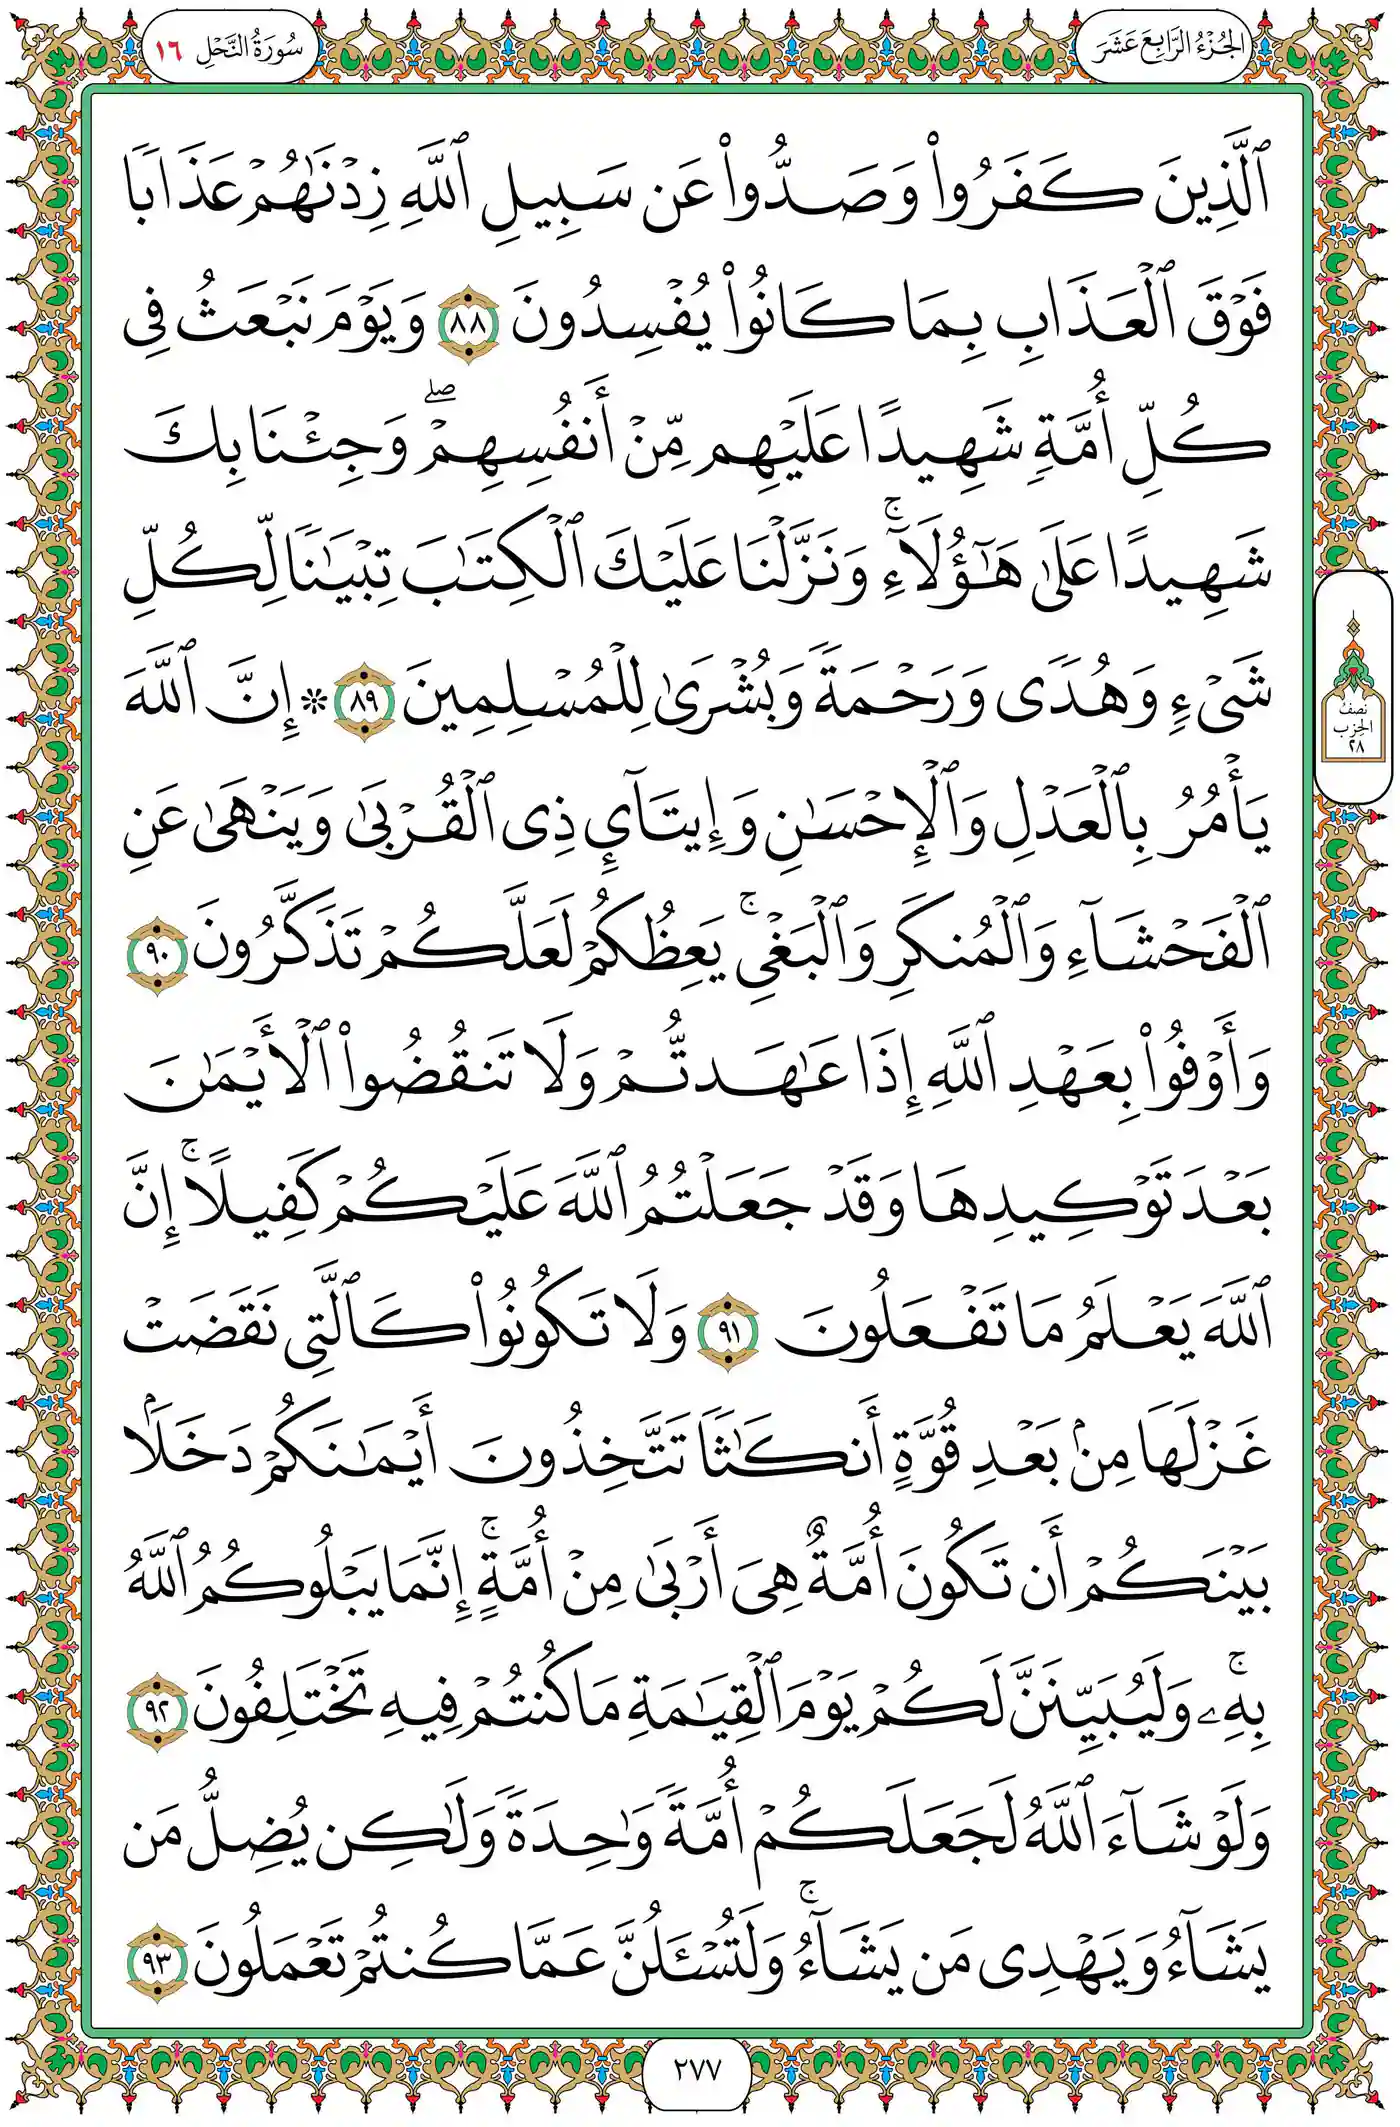 الجُزْءُ الرَّابِعَ عَشَرَ
سُورَةُ النَّحْلِ ١٦
ٱلَّذِينَ كَفَرُوا۟ وَصَدُّوا۟ عَن سَبِيلِ ٱللَّهِ زِدْنَٰهُمْ عَذَابًا
فَوْقَ ٱلْعَذَابِ بِمَا كَانُوا۟ يُفْسِدُونَ ٨٨ وَيَوْمَ نَبْعَثُ فِى
كُلِّ أُمَّةٍ شَهِيدًا عَلَيْهِم مِّنْ أَنفُسِهِمْ ۖ وَجِئْنَا بِكَ
شَهِيدًا عَلَىٰ هَٰٓؤُلَآءِ ۚ وَنَزَّلْنَا عَلَيْكَ ٱلْكِتَٰبَ تِبْيَٰنًا لِّكُلِّ
شَىْءٍ وَهُدًى وَرَحْمَةً وَبُشْرَىٰ لِلْمُسْلِمِينَ ٨٩ ۞ إِنَّ ٱللَّهَ
يَأْمُرُ بِٱلْعَدْلِ وَٱلْإِحْسَٰنِ وَإِيتَآئِ ذِى ٱلْقُرْبَىٰ وَيَنْهَىٰ عَنِ
ٱلْفَحْشَآءِ وَٱلْمُنكَرِ وَٱلْبَغْىِ ۚ يَعِظُكُمْ لَعَلَّكُمْ تَذَكَّرُونَ ٩٠
وَأَوْفُوا۟ بِعَهْدِ ٱللَّهِ إِذَا عَٰهَدتُّمْ وَلَا تَنقُضُوا۟ ٱلْأَيْمَٰنَ
بَعْدَ تَوْكِيدِهَا وَقَدْ جَعَلْتُمُ ٱللَّهَ عَلَيْكُمْ كَفِيلًا ۚ إِنَّ
ٱللَّهَ يَعْلَمُ مَا تَفْعَلُونَ ٩١ وَلَا تَكُونُوا۟ كَٱلَّتِى نَقَضَتْ
غَزْلَهَا مِنۢ بَعْدِ قُوَّةٍ أَنكَٰثًا تَتَّخِذُونَ أَيْمَٰنَكُمْ دَخَلًۢا
بَيْنَكُمْ أَن تَكُونَ أُمَّةٌ هِىَ أَرْبَىٰ مِنْ أُمَّةٍ ۚ إِنَّمَا يَبْلُوكُمُ ٱللَّهُ
بِهِۦ ۚ وَلَيُبَيِّنَنَّ لَكُمْ يَوْمَ ٱلْقِيَٰمَةِ مَا كُنتُمْ فِيهِ تَخْتَلِفُونَ ٩٢
وَلَوْ شَآءَ ٱللَّهُ لَجَعَلَكُمْ أُمَّةً وَٰحِدَةً وَلَٰكِن يُضِلُّ مَن
يَشَآءُ وَيَهْدِى مَن يَشَآءُ ۚ وَلَتُسْـَٔلُنَّ عَمَّا كُنتُمْ تَعْمَلُونَ ٩٣
نصف
الحزب
٢٨
٢٧٧